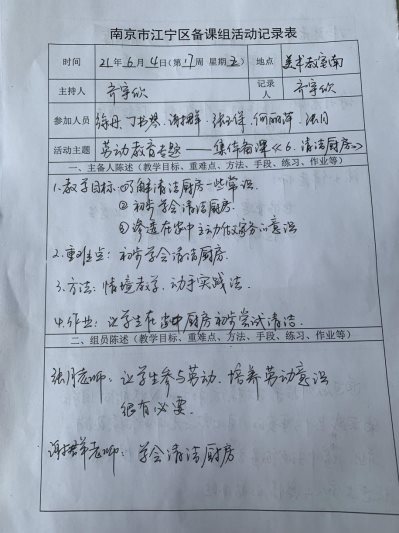 南京市江宁区备课组活动记录表
时间 21年6月4日(第17周 星期五) 地点 美术教室南
主持人 齐宇欣 记录人 齐宇欣
参加人员 徐丹、丁、谢、张、何丽萍、张月
活动主题 劳动教育专题——集体备课《6.清洁厨房》
一、主备人陈述(教学目标、重难点、方法、手段、练习、作业等)
1.教学目标:①了解清洁厨房一些常识.
②初步学会清洁厨房.
③渗透在家中主动做家务的意识
2.重难点:初步学会清洁厨房.
3.方法:情境教学、动手实践法.
4.作业:让学生在家中厨房初步尝试清洁.
二、组员陈述(教学目标、重难点、方法、手段、练习、作业等)
张月老师:让学生参与劳动,培养劳动意识
很有必要.
谢老师:学会清洁厨房